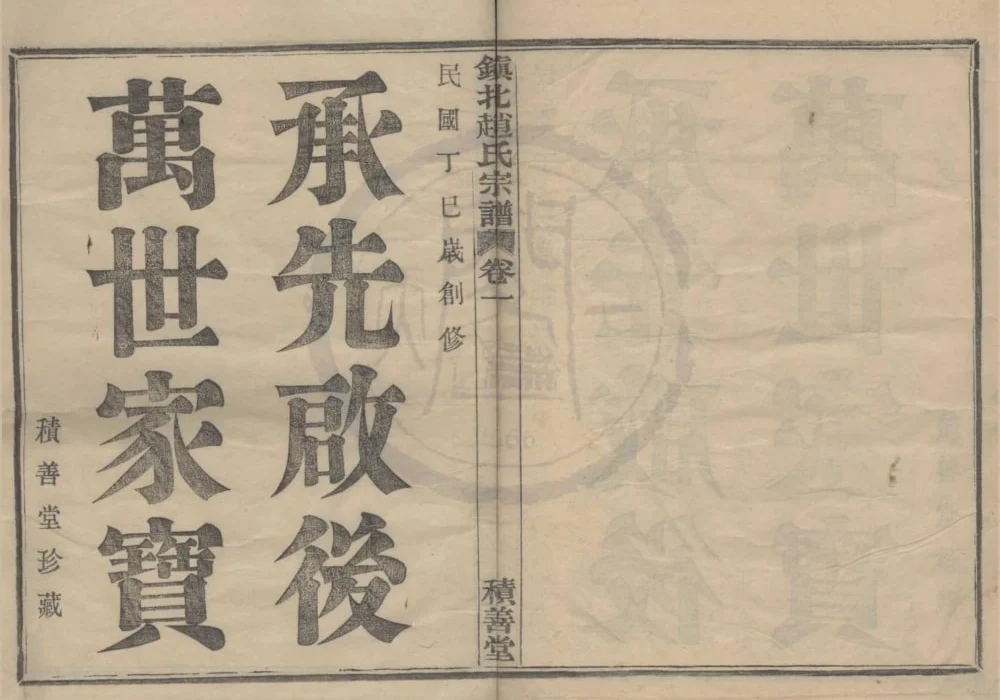 鎮北趙氏宗譜 卷一
積善堂
民國丁巳歲創修
承先啟後
萬世家寶
積善堂珍藏